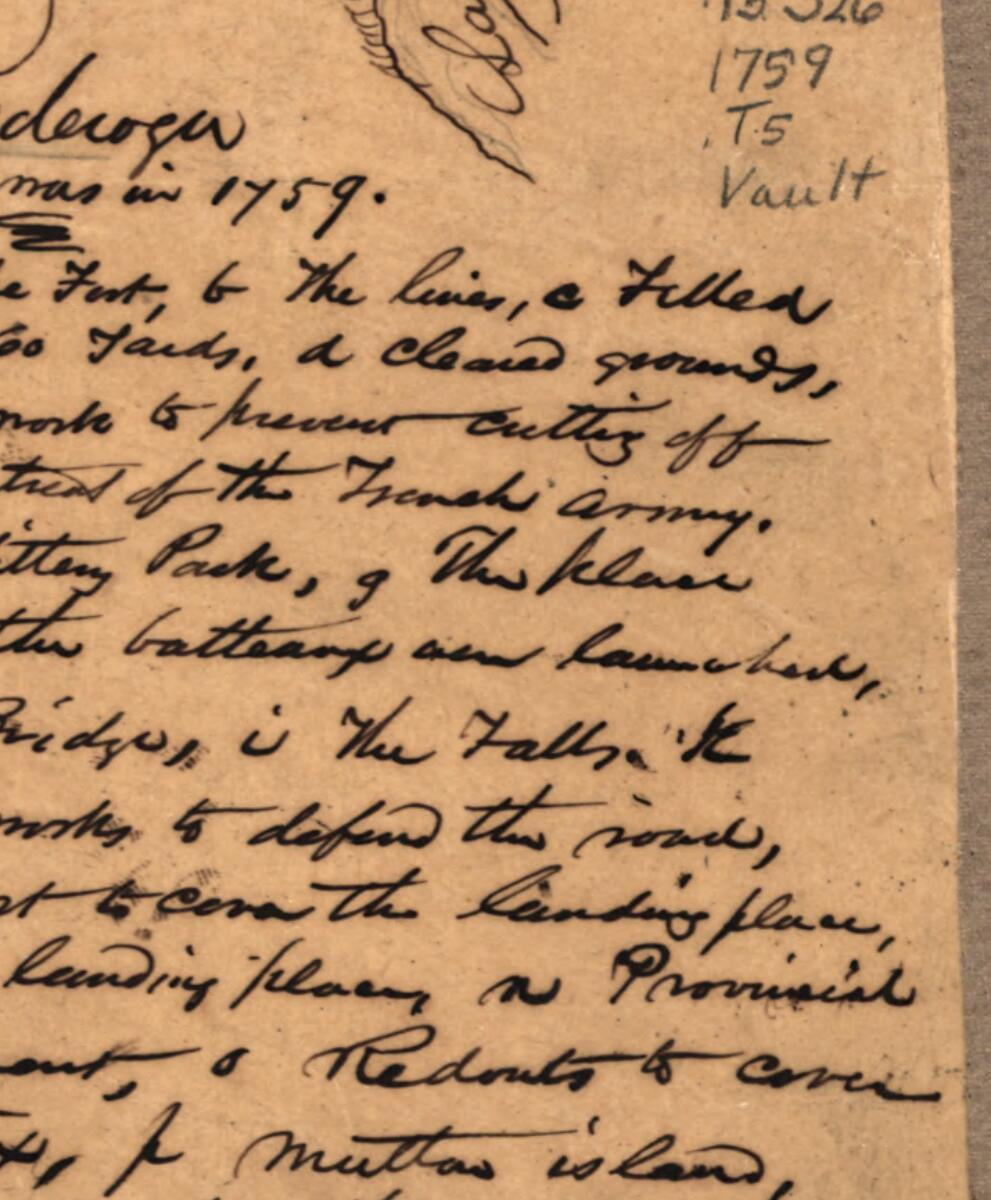 1759
T5
Vault
was in 1759.
Fort, b The lines, c Felled
Yards, d cleared grounds,
work to prevent cutting off
of the French army.
Park, g The place
the batteaux were launched,
Bridge, i The Falls. K
works to defend the road,
to cover the landing place,
landing place, n Provincial
o Redouts to cover
p mutton island,